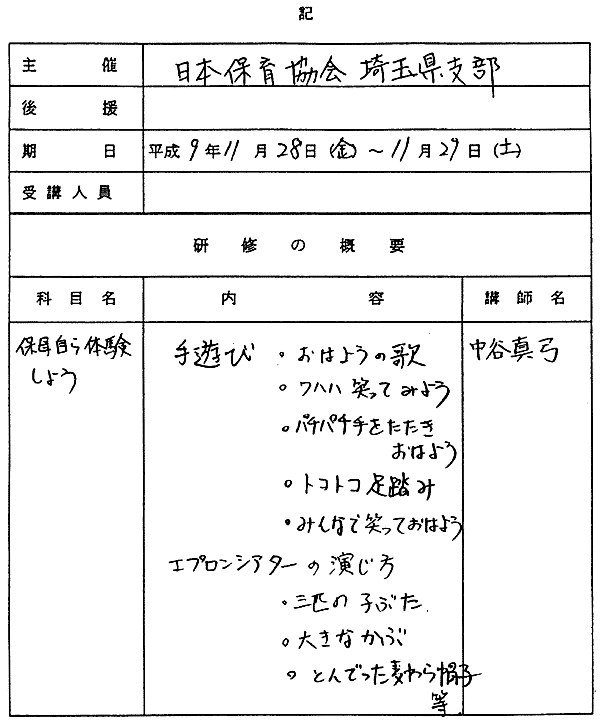 記
主催 日本保育協会 埼玉県支部
後援
期日 平成9年11月28日(金)～11月29日(土)
受講人員
研修の概要
科目名 内容 講師名
保母自ら体験 手遊び 。おはようの歌 中谷真弓
しよう 。ワハハ笑ってみよう
。パチパチ手をたたき
おはよう
。トコトコ足踏み
・みんなで笑っておはよう
エプロンシアターの演じ方
・三匹の子ぶた
・大きなかぶ
。とんでった麦わら帽子
等